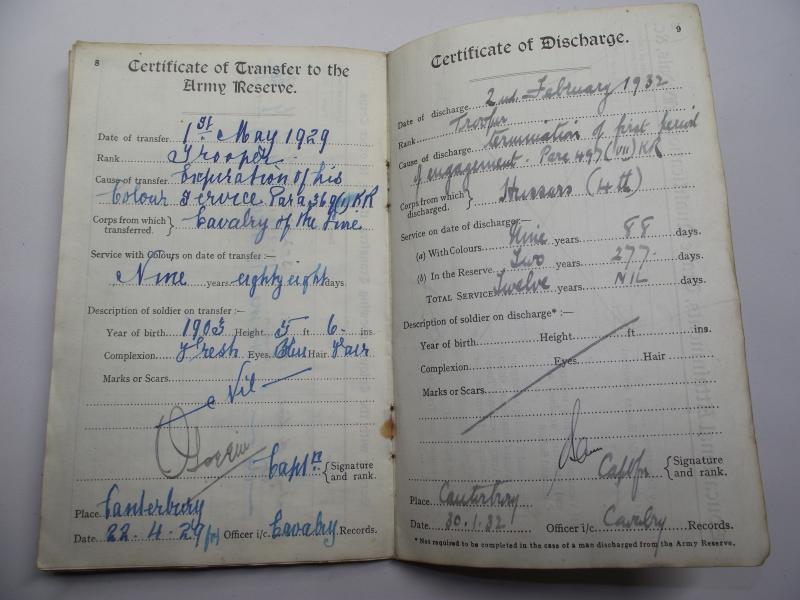 8
Certificate of Transfer to the
Army Reserve.
Date of transfer 1st May 1929
Rank Trooper
Cause of transfer Expiration of his
Colour Service Para 369(1) KR
Corps from which transferred. } Cavalry of the Line
Service with Colours on date of transfer :—
Nine years eighty eight days
Description of soldier on transfer :—
Year of birth 1903 Height 5 ft 6 ins.
Complexion Fresh Eyes Blue Hair Fair
Marks or Scars
Nil
Captn { Signature and rank.
Place Canterbury
Date 22.4.29 Officer i/c. Cavalry Records.
9
Certificate of Discharge.
Date of discharge 2nd February 1932
Rank Trooper
Cause of discharge termination of first period
of engagement. Para 497 (VII) KR
Corps from which discharged. } Hussars (4th)
Service on date of discharge:—
(a) With Colours Nine years 88 days.
(b) In the Reserve Two years 277 days.
TOTAL SERVICE Twelve years NIL days.
Description of soldier on discharge* :—
Year of birth Height ft ins.
Complexion Eyes Hair
Marks or Scars
Capt fr { Signature and rank.
Place Canterbury
Date 30.1.32 Officer i/c Cavalry Records.
* Not required to be completed in the case of a man discharged from the Army Reserve.